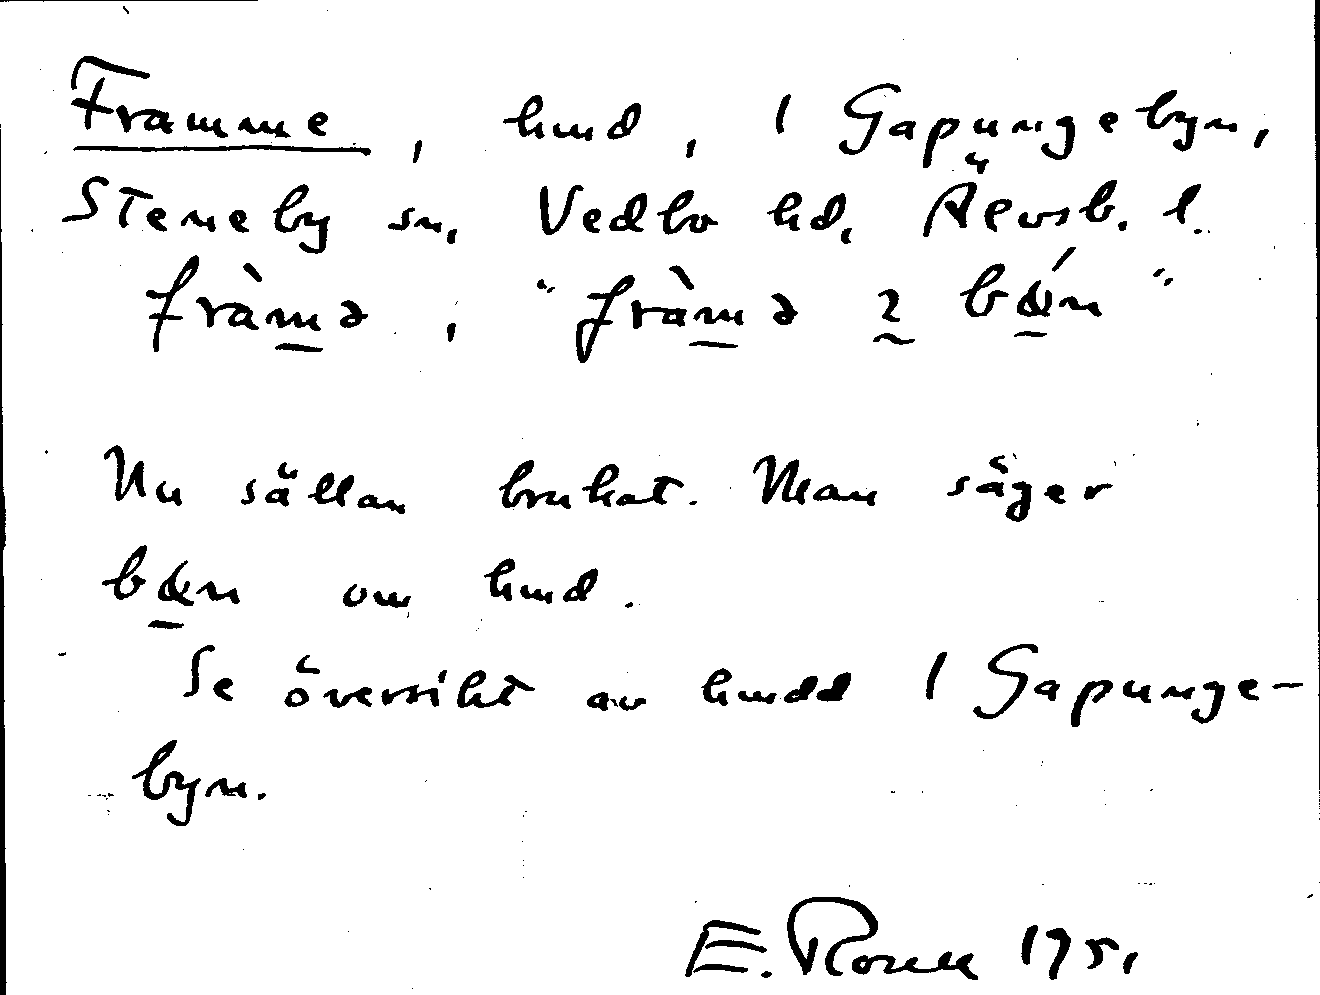 Framme, hmd, i Gapungebyn,
Steneby sn, Vedbo hd, Älvsb. l.
fràmə, "fràmə 2 bǽn"
Nu sällan brukat. Man säger
bæn om hmd.
Se översikt av hmdd i Gapunge-
byn.
E. 1951